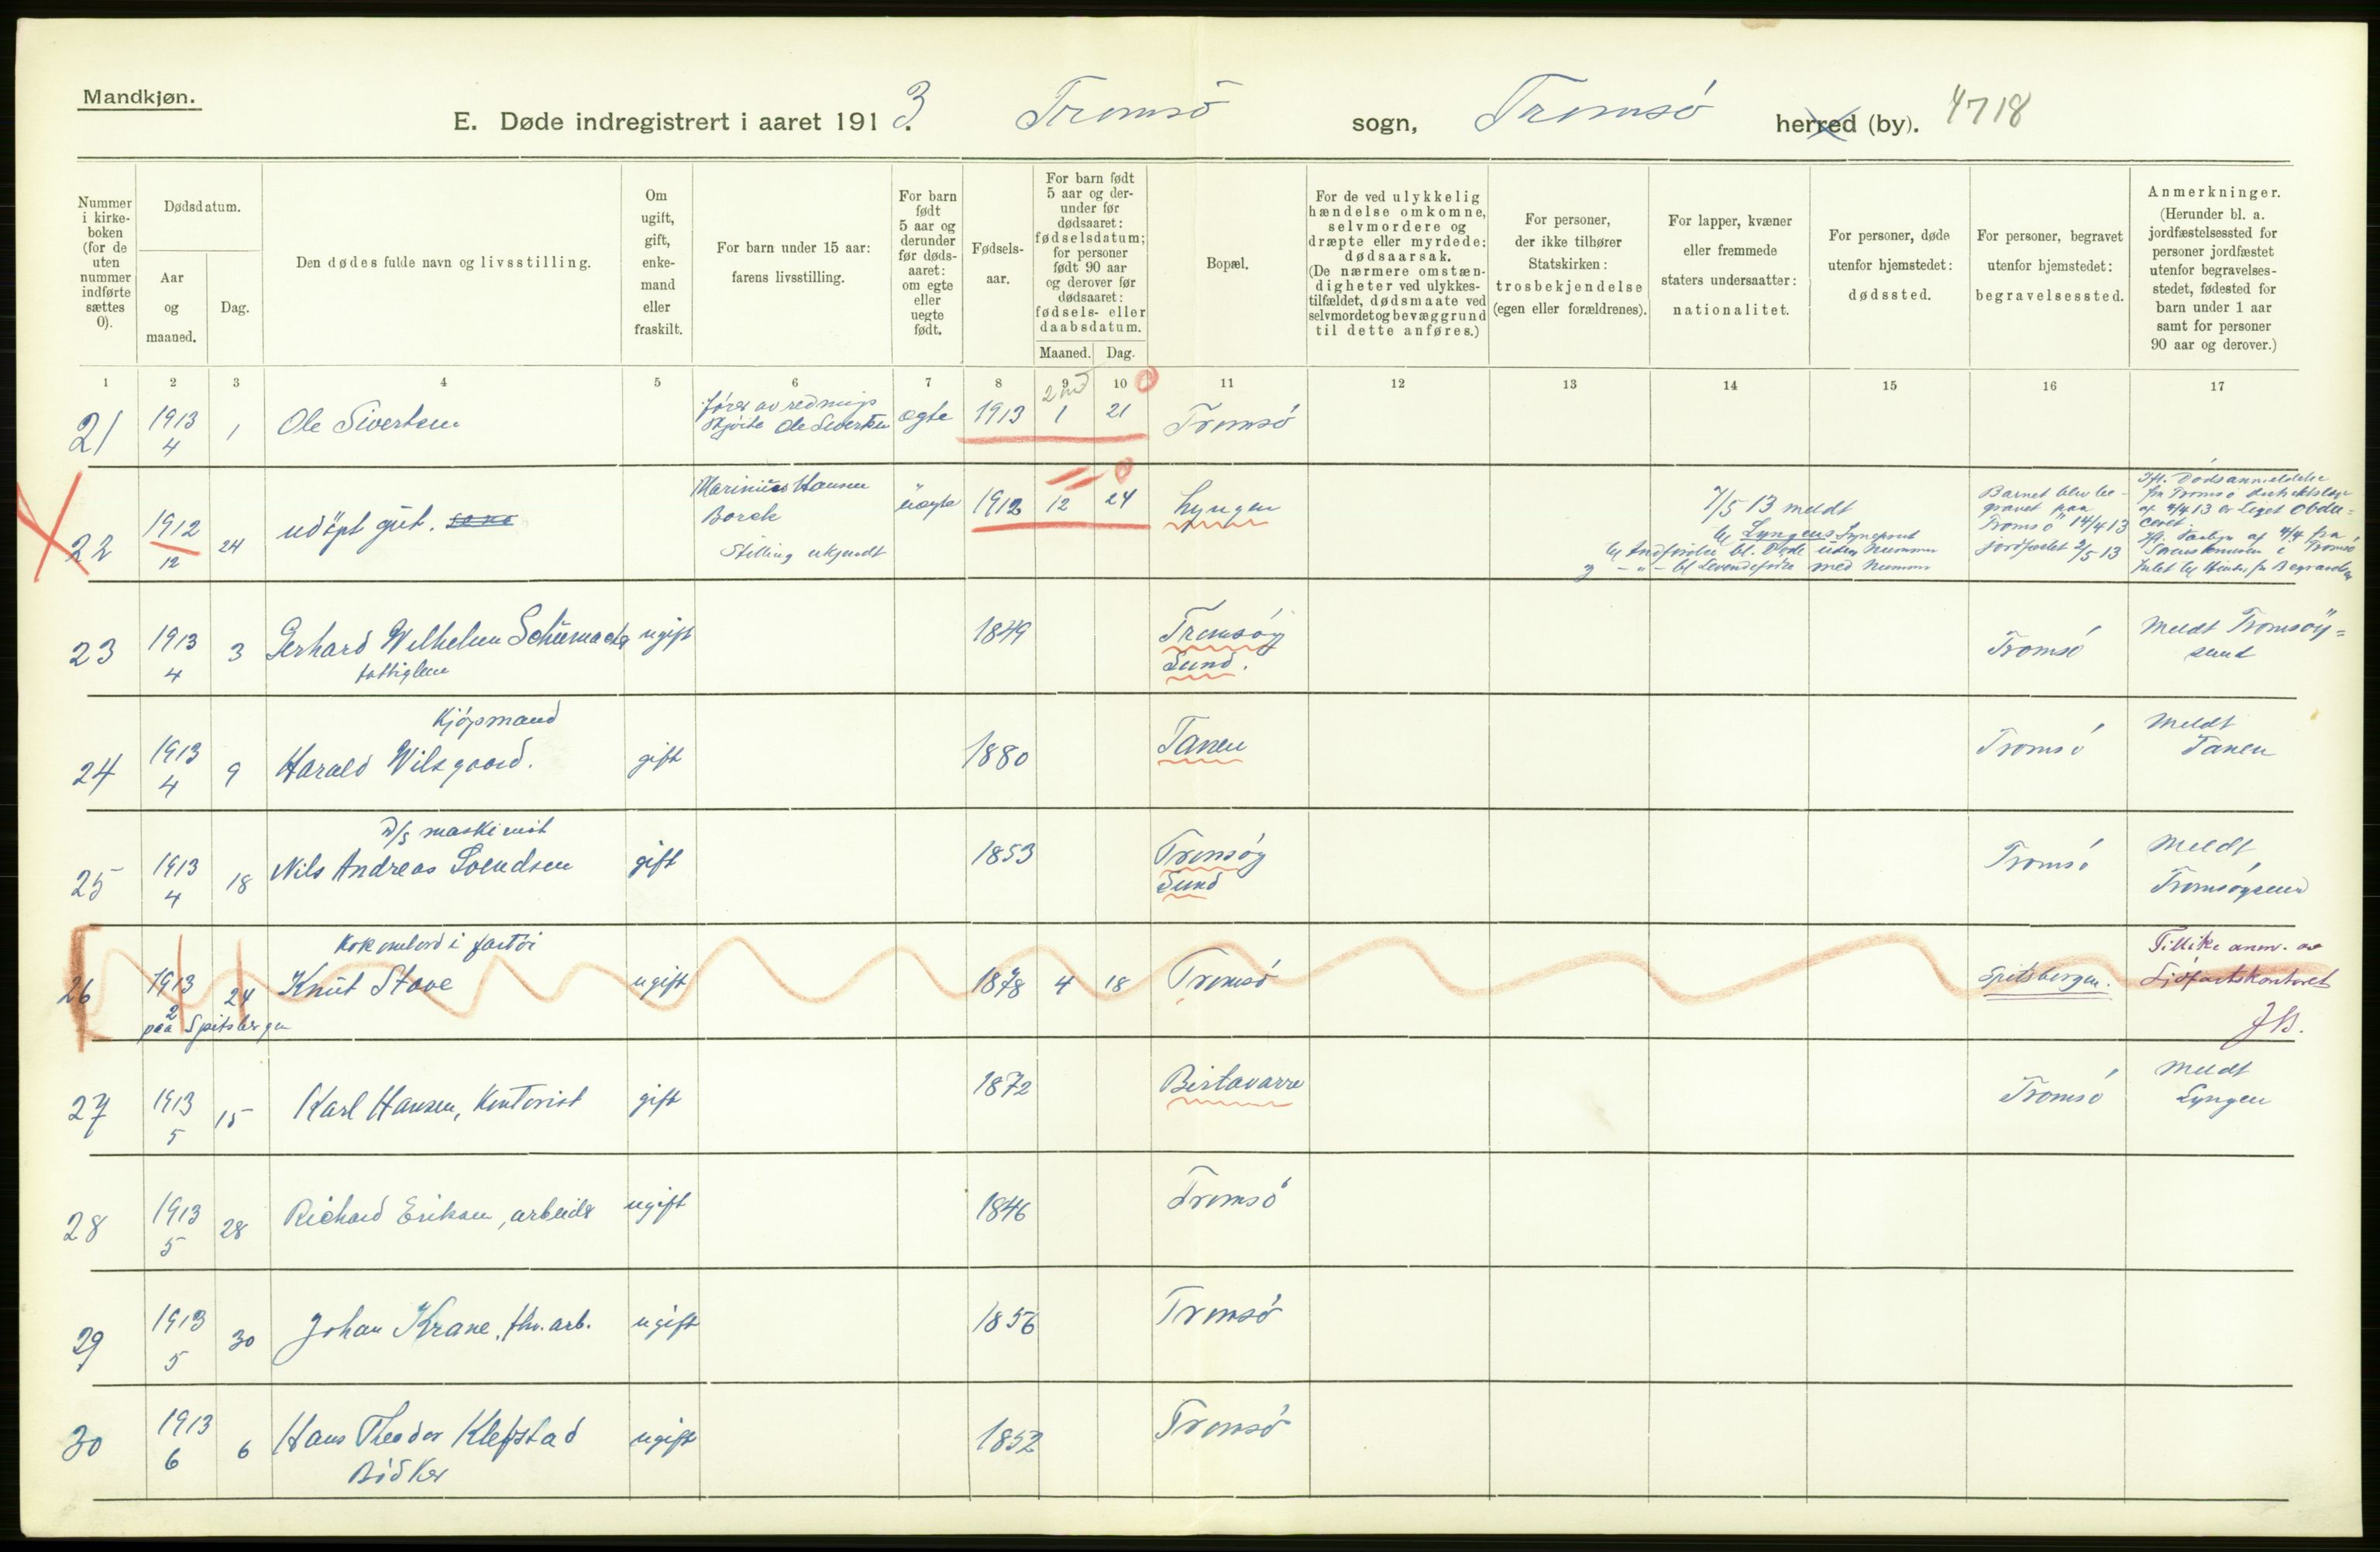 Mandkjøn.
E. Døde indregistrert i aaret 1913. Tromsö sogn, Tromsó herred (by). 4718
Nummer i kirke-boken (for de uten nummer indførte sættes 0).
Dødsdatum.
Aar og maaned.
Dag.
Den dødes fulde navn og livsstilling.
Om ugift, gift, enke-mand eller fraskilt.
For barn under 15 aar: farens livsstilling.
For barn født 5 aar og derunder før døds-aaret: om egte eller uegte født.
Fødsels-aar.
For barn født 5 aar og der-under før dødsaaret: fødselsdatum; for personer født 90 aar og derover før dødsaaret: fødsels- eller daabsdatum.
Maaned. Dag.
Bopæl.
For de ved ulykkelig hændelse omkomne, selvmordere og dræpte eller myrdede: dødsaarsak. (De nærmere omstæn-digheter ved ulykkes-tilfældet, dødsmaate ved selvmordet og bevæggrund til dette anføres.)
For personer, der ikke tilhører Statskirken: trosbekjendelse (egen eller forældrenes).
For lapper, kvæner eller fremmede staters undersaatter: nationalitet.
For personer, døde utenfor hjemstedet: dødssted.
For personer, begravet utenfor hjemstedet: begravelsessted.
Anmerkninger. (Herunder bl. a. jordfæstelsessted for personer jordfæstet utenfor begravelses-stedet, fødested for barn under 1 aar samt for personer 90 aar og derover.)
1 2 3 4 5 6 7 8 9 10 11 12 13 14 15 16 17
2 md 0
21 1913 4 1 Ole Sivertsen fører av rednings skjöite Ole Sivertsen egte 1913 1 21 Tromsó
22 1912 12 24 udöpt gut. Marinius Hansen Borck Stilling ukjendt uegte 1912 12 24 Lyngen
7/5 13 meldt
til Lyngens Sogneprest
til Indførelse bl. Døde uden Nummer
og - " - bl Levendefødte med Nummer
Barnet blev be-
gravet paa
Tromsö 14/4 13
jordfæstet 2/5 13
Ifl. Dødsanmeldelse
fra Tromsø
af 4/4 13 er Liget Obdu-
ceret.
23 1913 4 3 Gerhard Wilhelm Schumacher fattiglem ugift 1849 Tromsöy Sund. Tromsó Meldt Tromsöy=sund
24 1913 4 9 Kjöpmand Harald Wilsgaard. gift 1880 Tanen Tromsó Meldt Tanen
25 1913 4 18 D/s maskinist Nils Andreas Svendsen gift 1853 Tromsöy Sund Tromsó Meldt Tromsöysund
26 1913 2 24 paa Spitsbergen Kok ombord i fartöi Knut Stave ugift 1878 4 18 Tromsó Spitsbergen. Tillike anm. av Sjöfartskontoret JB.
27 1913 5 15 Karl Hansen, Kontorist gift 1872 Birtavarre Tromsó Meldt Lyngen
28 1913 5 28 Richard Eriksen, arbeider ugift 1846 Tromsó
29 1913 5 30 Johan Krane, fhv. arb. ugift 1856 Tromsó
30 1913 6 6 Hans Theodor Klefstad Bödker ugift 1852 Tromsó